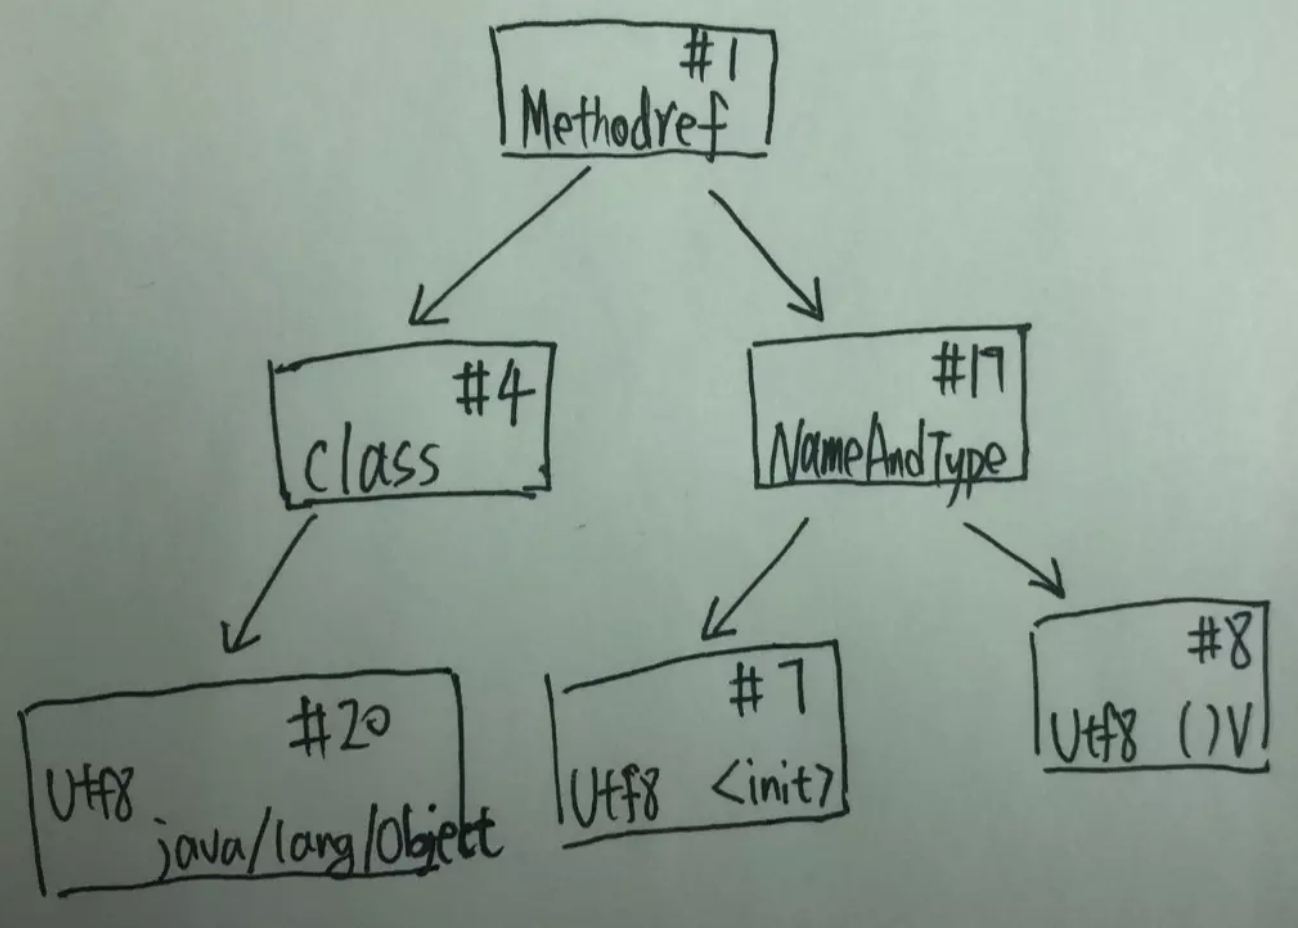 #1
Methodref
#4
class
#17
NameAndType
#20
Utf8
java/lang/Object
#7
Utf8 <init>
#8
Utf8 ()V